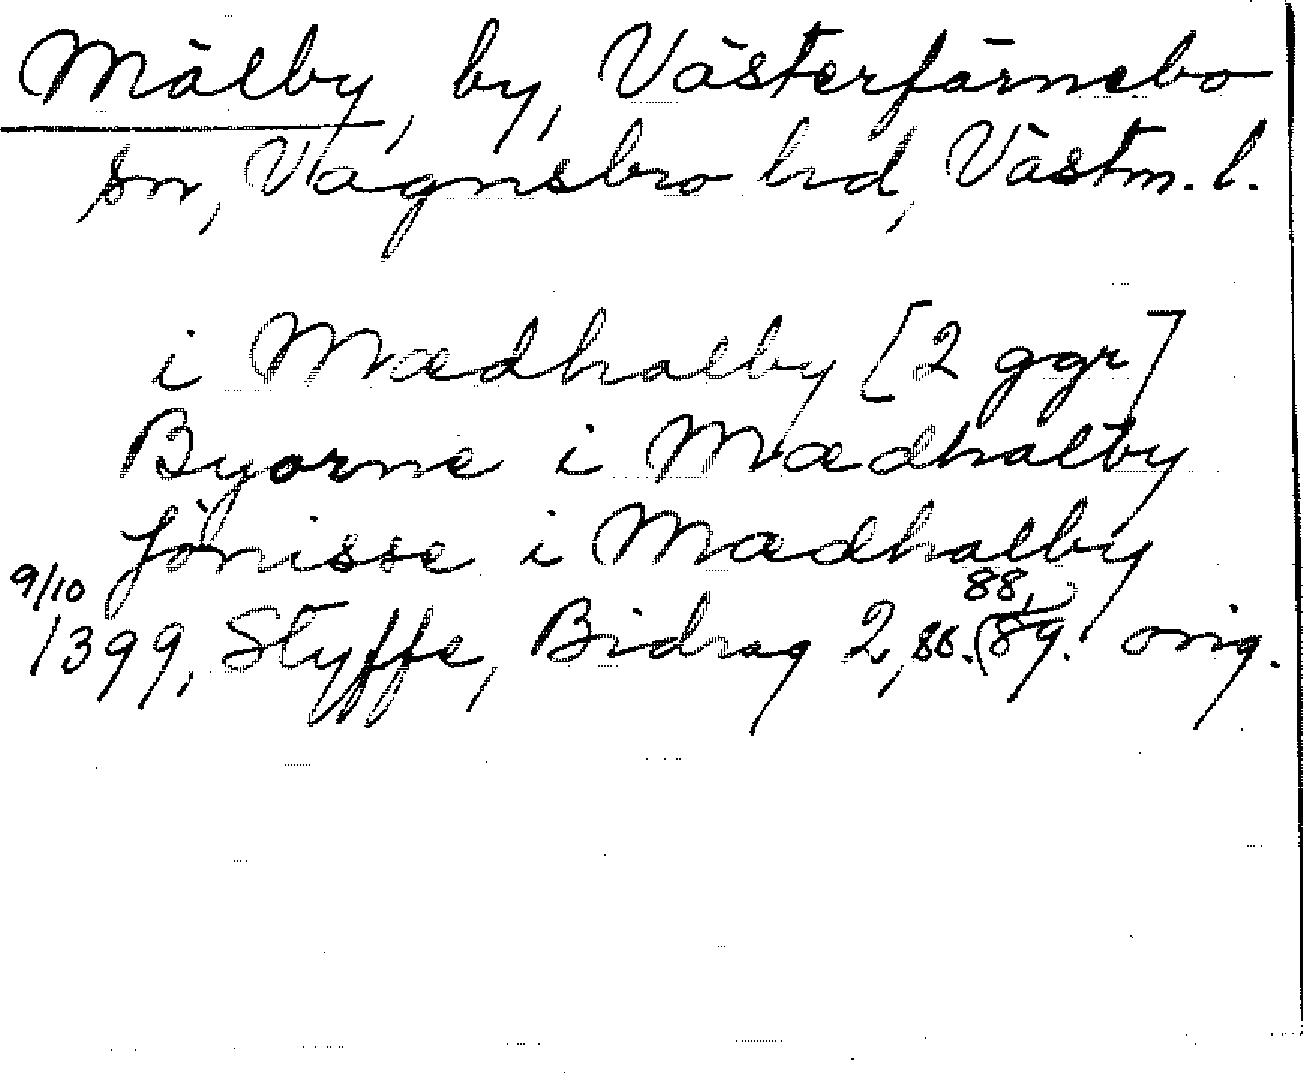 Mälby, by, Västerfärnebo
sn, Vagnsbro hd, Västm. l.
i Mædhalby [2 ggr]
Byorne i Mædhalby
Jönisse i Mædhalby
9/10 88,
1399, Styffe, Bidrag 2, s. (89. orig.